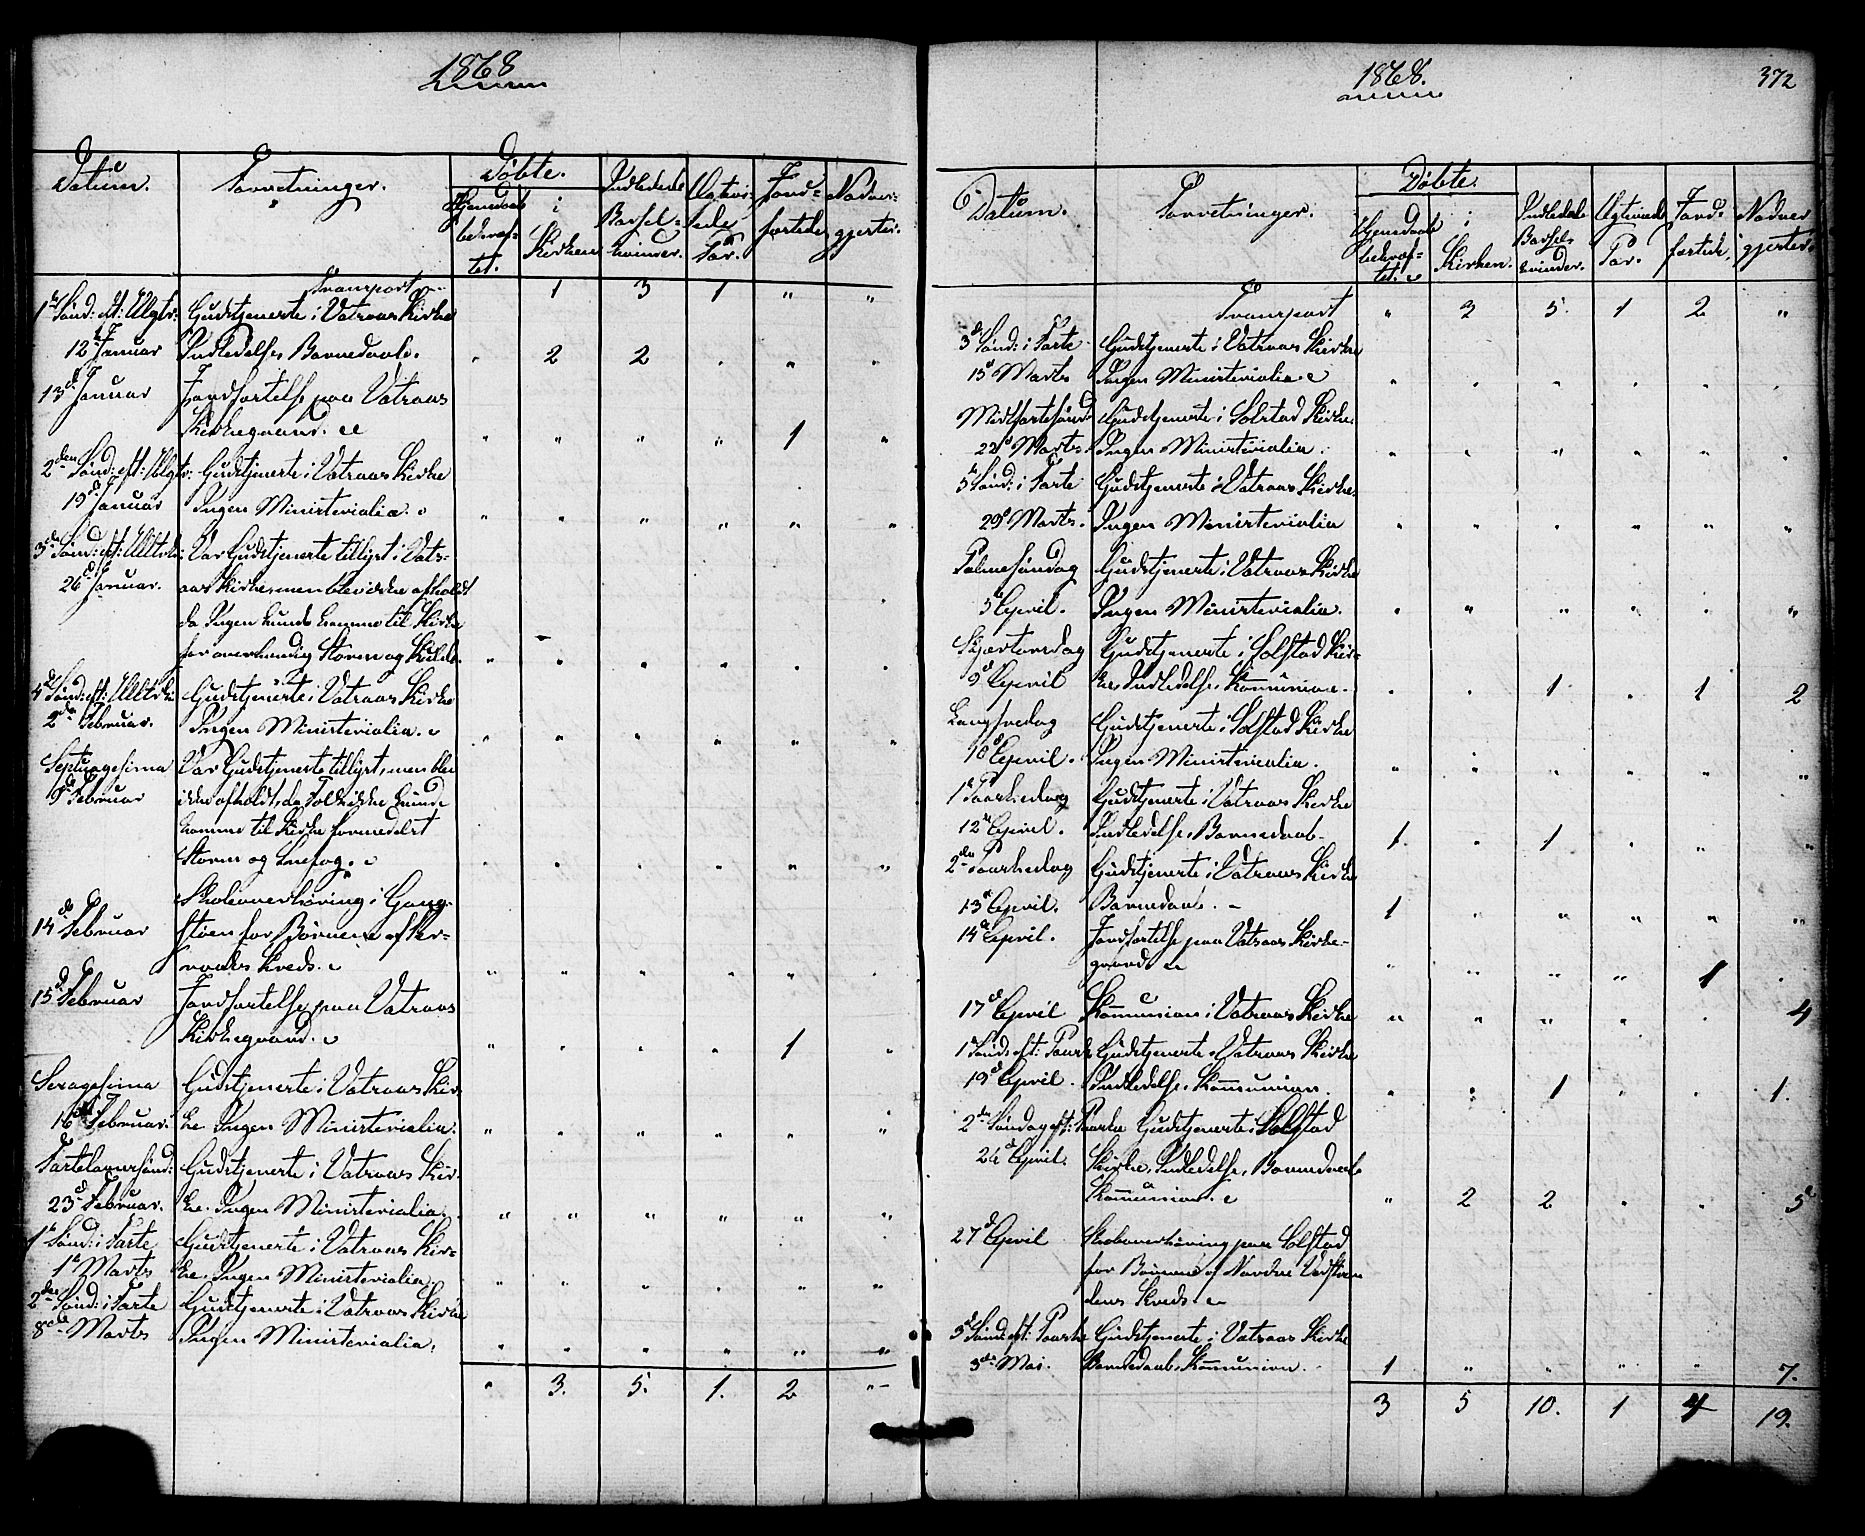 1868
Datum.
Forretninger.
Døbte.
Hjemedaab bekræf-
tet.
i
Kirken
Indledede
Barsel-
kvinder.
Ægtevi-
ede
Par.
Jord-
fæstede
Nadver-
gjester.
Transport 1 3 1 " "
1ste Sønd: eft: H3kgr: Gudstjeneste i Vatsaas Kirke
12te Januar Indledelse, Barnedaab. " 2 2 " " "
13de Januar Jordfæstelse paa Vatsaas
Kirkegaard. " " " " 1 "
2den Sønd: eft: H3kgr: Gudstjeneste i Vatsaas Kirke
19de Januar Ingen Ministerialia. " " " " " "
3die Sønd: eft: H3trk: Var Gudstjeneste tillyst i Vats-
26de Januar. aas Kirke, men blev ikke afholdt
da Ingen kunde komme til Kirke
for overhændig Storm og Kulde. " " " " " "
4de Sønd: eft: H3trk: Gudstjeneste i Vatsaas Kirke
2den Februar. Ingen Ministerialia. " " " " " "
Septuagesima Var Gudstjeneste tillyst, men blev
9de Februar ikke afholdt, da Folk ikke kunde
komme til Kirke formedelst
Storm og Snefog. " " " " " "
Skoleoverhøring i Gang-
14de Februar støen for Børnene af
Kreds. " " " " " "
15de Februar Jordfæstelse paa Vatsaas
Kirkegaard. " " " " 1 "
Sexagesima Gudstjeneste i Vatsaas Kir-
16de Februar. ke. Ingen Ministerialia. " " " " " "
Fastelavnssønd: Gudstjeneste i Vatsaas Kir-
23de Februar. ke. Ingen Ministerialia. " " " " " "
1ste Sønd: i Faste Gudstjeneste i Vatsaas Kir-
1ste Marts ke. Ingen Ministerialia. " " " " " "
2den Sønd: i Faste Gudstjeneste i Vatsaas Kirke
8de Marts Ingen Ministerialia. " " " " " "
" 3. 5. 1. 2 "
1868.
372
Datum.
Forretninger.
Døbte.
Hjemedaab
bekræf-
tet.
i
Kirken.
Indledede
Barsels
kvinder.
Ægteviede
Par.
Jord-
fæstede.
Nadver
gjester.
Transport " 3 5. 1 2 "
3die Sønd: i Faste Gudstjeneste i Vatsaas Kirke
15de Marts Ingen Ministerialia. " " " " " "
Midfastesønd: Gudstjeneste i Solstad Kirke.
22de Marts Ingen Ministerialia. " " " " " "
5te Sønd: i Faste Gudstjeneste i Vatsaas Kirke.
29de Marts. Ingen Ministerialia " " " " " "
Palmesøndag Gudstjeneste i Vatsaas Kirke
5te April. Ingen Ministerialia. " " " " " "
Skjærtorsdag Gudstjeneste i Solstad Kir-
9de April ke, Indledelse, Kommunion. " " 1 " 1 2
Langfredag Gudstjeneste i Solstad Kirke
10de April. Ingen Ministerialia. " " " " " "
1ste Paaskedag Gudstjeneste i Vatsaas Kirke
12te April. Indledelse, Barnedaab. 1. " 1 " " "
2den Paaskedag Gudstjeneste i Vatsaas Kirke
13de April. Barnedaab. 1 " " " " "
14de April. Jordfæstelse paa Vatsaas Kirke-
gaard. " " " " 1 "
17de April Kommunion i Vatsaas Kirke " " " " " 4
1ste Sønd: eft: Paaske Gudstjeneste i Vatsaas Kirke
19de April. Indledelse, Kommunion. " " 1 " " 1.
2den Søndag eft: Paaske Gudstjeneste i Solstad
26de April. Kirke, Indledelse, Barnedaab
Kommunion. " 2 2 " " 5
27de April Skoleoverhøring paa Solstad
for Børnene af Nordre
Kreds.
3die Sønd: eft: Paaske Gudstjeneste i Vatsaas Kirke
3die Mai. Barnedaab, Kommunion. 1 " " " " 7.
3 5 10. 1 4 19.